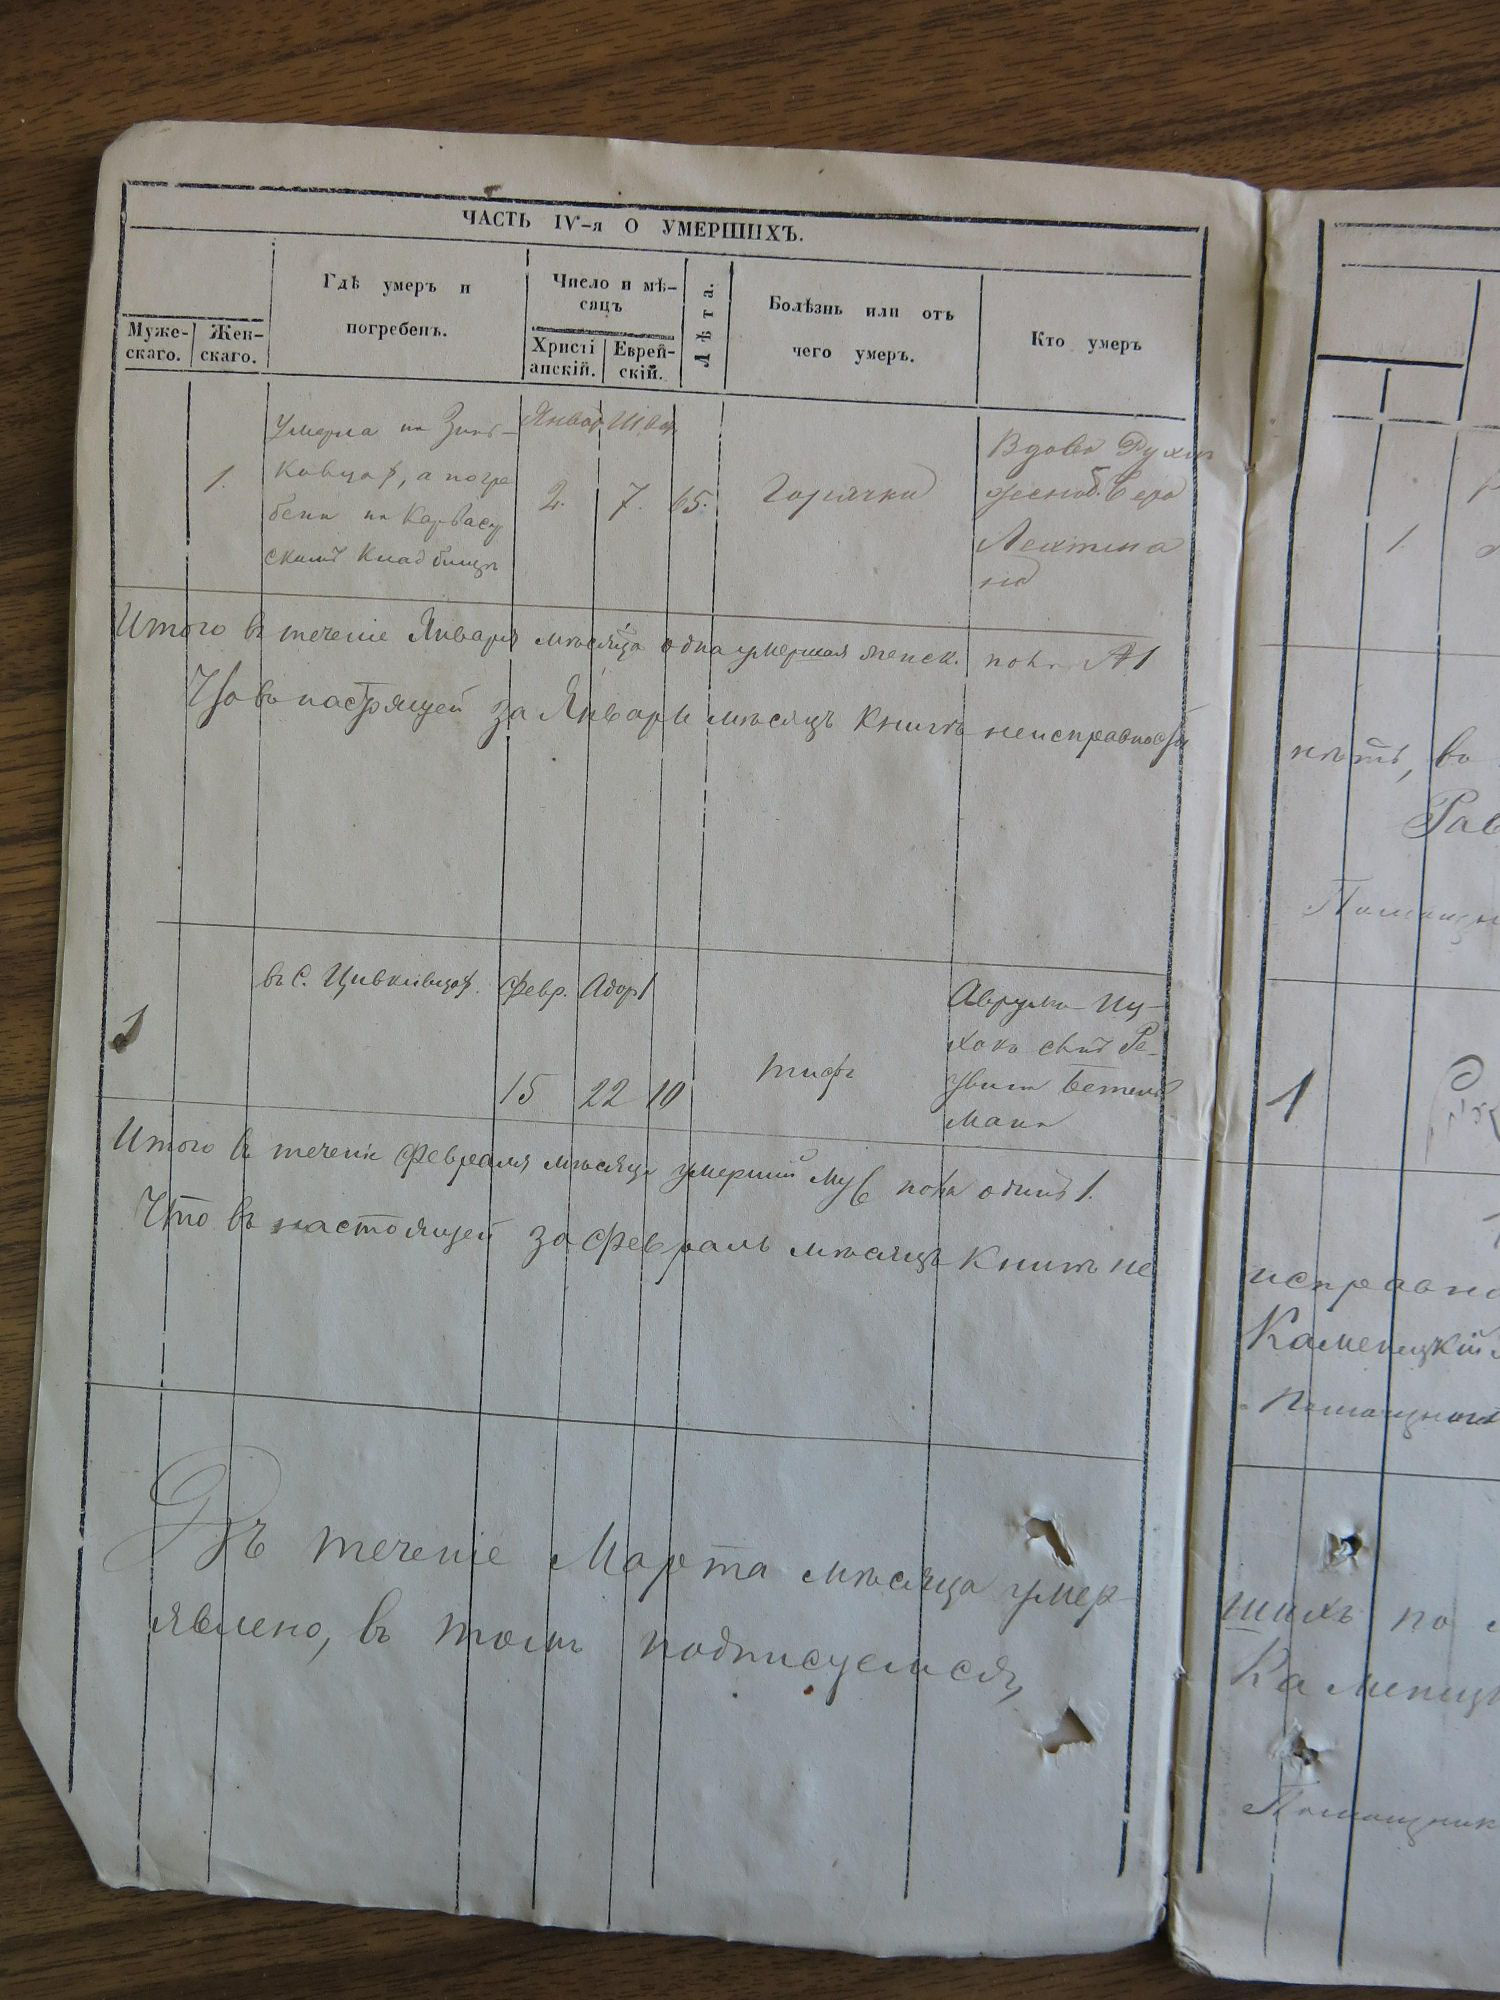 ЧАСТЬ IV-я О УМЕРШИХЪ.
Муже-
скаго.
Жен-
скаго.
Гдѣ умеръ и
погребенъ.
Число и мѣ-
сяцъ
Христі
анскій.
Еврей-
скій.
Лѣта.
Болѣзнь или отъ
чего умеръ.
Кто умеръ
1.
Умерла
а погре
бена на
скомъ кладбищѣ
2.
7.
65.
Горячки
Вдова
Итого въ теченіе Января мѣсяца одна умершая женск. пола № 1
Что въ настоящей за Январь мѣсяцъ книгѣ неисправности
1
въ с. Цивковцах.
Февр.
Адор 1
15
22
10
тифъ
Аврумъ Иц-
хокъ сынъ
Бетель
манъ
Итого въ теченіи Февраля мѣсяца умершій муж пола одинъ 1.
Что въ настоящей за Февраль мѣсяцъ книгѣ не
Въ теченіе Марта мѣсяца умер-
явлено, въ томъ подписуемся,
1.
нѣтъ, въ
Рав
Помощн
1
исправно
Каменецкій
Помощникъ
шихъ по
Каменец
Помощник